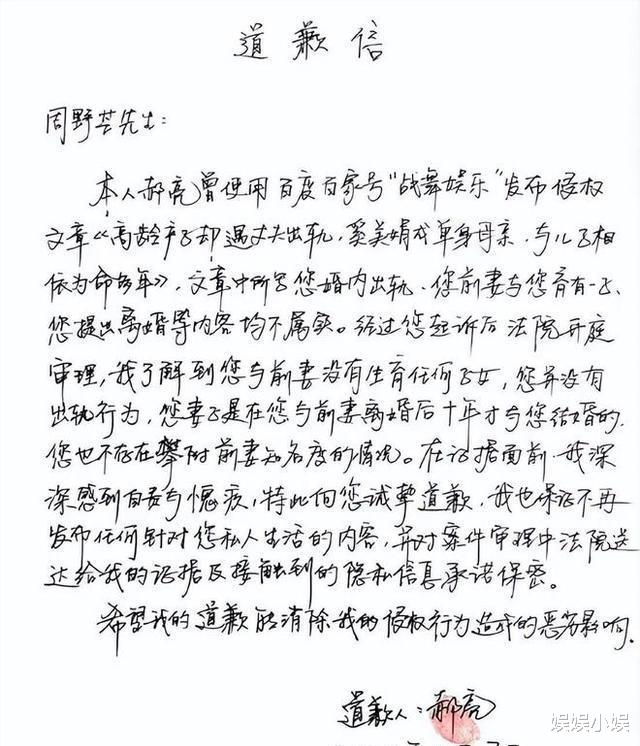 道歉信
周野芒先生：
本人郝亮曾使用百度百家号“战舞娱乐”发布侵权
文章《高龄产子却遇丈夫出轨，奚美娟成单身母亲，与儿子相
依为命多年》，文章中所写您婚内出轨、您前妻与您育有一子、
您提出离婚等内容均不属实。经过您起诉后法院开庭
审理，我了解到您与前妻没有生育任何子女，您并没有
出轨行为，您妻子是在您与前妻离婚后十年才与您结婚的，
您也不存在攀附前妻知名度的情况。在证据面前，我深
深感到自责与愧疚，特此向您诚挚道歉，我也保证不再
发布任何针对您私人生活的内容，并对案件审理中法院送
达给我的证据及接触到的隐私信息承诺保密。
希望我的道歉能消除我的侵权行为造成的恶劣影响。
道歉人：郝亮
娱娱小娱